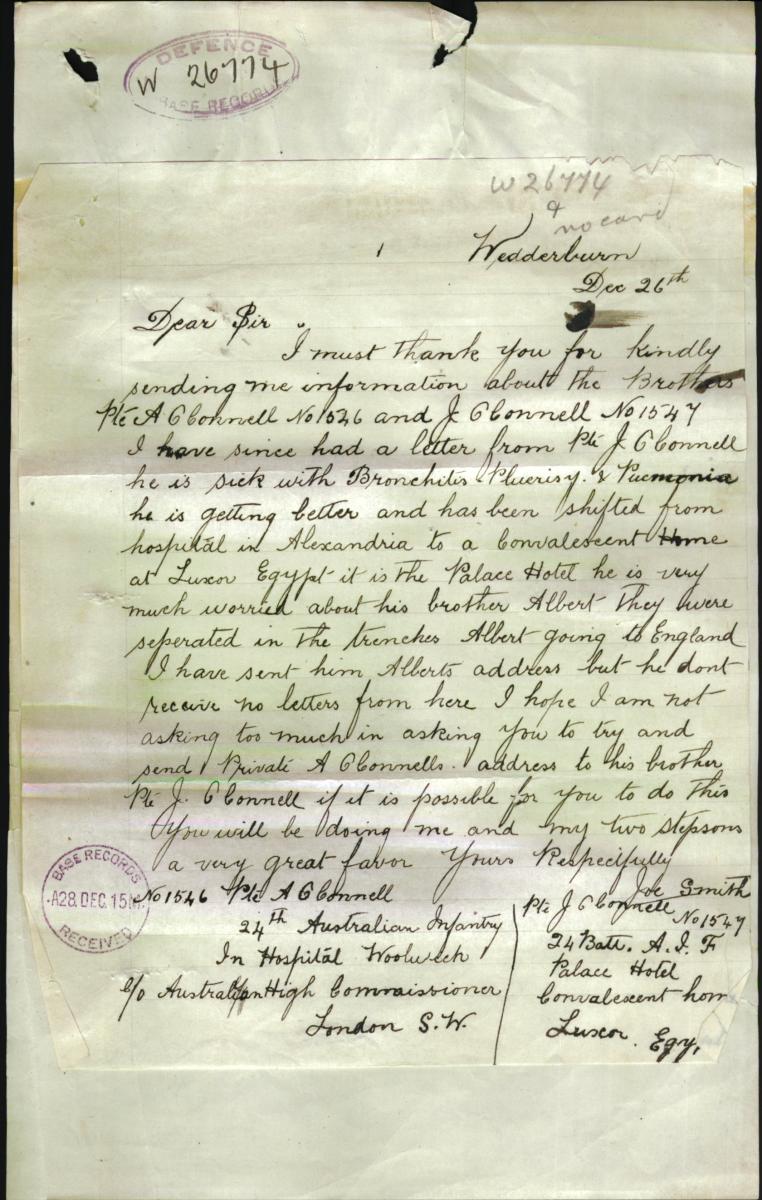 DEFENCE
W 26774
BASE RECORDS
W 26774
no card
1
Wedderburn
Dec 26th
Dear Sir
I must thank you for kindly
sending me information about the Brothers
Pte A OConnell No 1546 and J. OConnell No 1547
I have since had a letter from Pte J. OConnell
he is sick with Bronchitis Pluerisy. & Puemonia
he is getting better and has been shifted from
hospital in Alexandria to a Convalescent Home
at Luxor Egypt it is the Palace Hotel he is very
much worried about his brother Albert they were
seperated in the trenches Albert going to England
I have sent him Alberts address but he dont
receive no letters from here I hope I am not
asking too much in asking you to try and
send Private A OConnells. address to his brother
Pte J. OConnell if it is possible for you to do this
you will be doing me and my two stepsons
a very great favor Yours Respecifully
Joe Smith
BASE RECORDS
A28. DEC. 15 M
RECEIVED
No 1546 Pte A OConnell
24th Australian Infantry
In Hospital Woolwich
c/o Australian High Commaissioner
London S.W.
Pte J OConnell No 1547
24 Batt. A. I. F
Palace Hotel
Convalescent hom
Luxor. Egy.